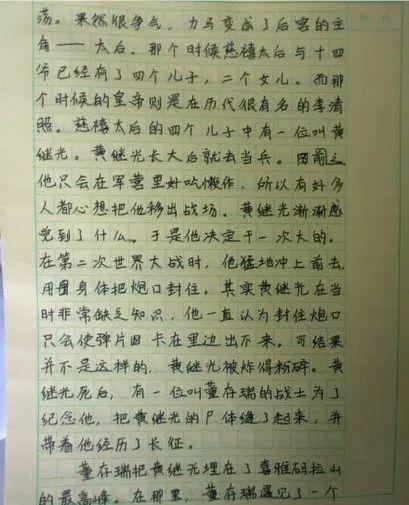 荡。果然很争气，力马变成了后宫的主
角——太后。那个时候慈禧太后与十四
爷已经有了四个儿子，二个女儿。而那
个时候的皇帝则是在历代很有名的李清
照。慈禧太后的四个儿子中有一位叫黄
继光。黄继光长大后就去当兵。因
他只会在军营里好吃懒作，所以有好多
人都心想把他移出战场。黄继光渐渐感
觉到了什么。于是他决定干一次大的。
在第二次世界大战时，他猛地冲上前去，
用身体把炮口封住。其实黄继光在当
时非常缺乏知识，他一直认为封住炮口
只会使弹片卡在里边出不来。可结果
并不是这样的，黄继光被炸得粉碎。黄
继光死后，有一位叫董存瑞的战士为了
纪念他，把黄继光的尸体缝了起来，并
带着他经历了长征。
董存瑞把黄继光埋在了喜雅码拉山
的最高峰。在那里，董存瑞遇见了一个